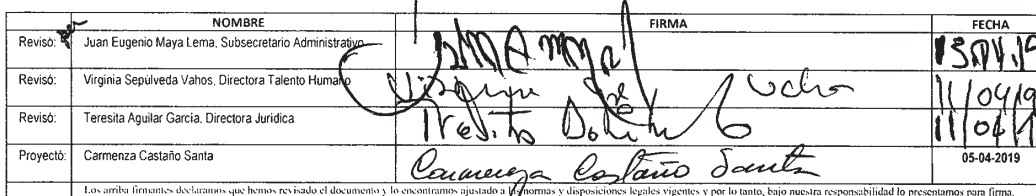 NOMBRE FIRMA FECHA
Revisó: Juan Eugenio Maya Lema, Subsecretario Administrativo
Revisó: Virginia Sepúlveda Vahos, Directora Talento Humano 11/04/19
Revisó: Teresita Aguilar Garcia, Directora Jurídica
Proyectó: Carmenza Castaño Santa Carmenza Castaño Santa 05-04-2019
Los arriba firmantes declaramos que hemos revisado el documento y lo encontramos ajustado a las normas y disposiciones legales vigentes y por lo tanto, bajo nuestra responsabilidad lo presentamos para firma.